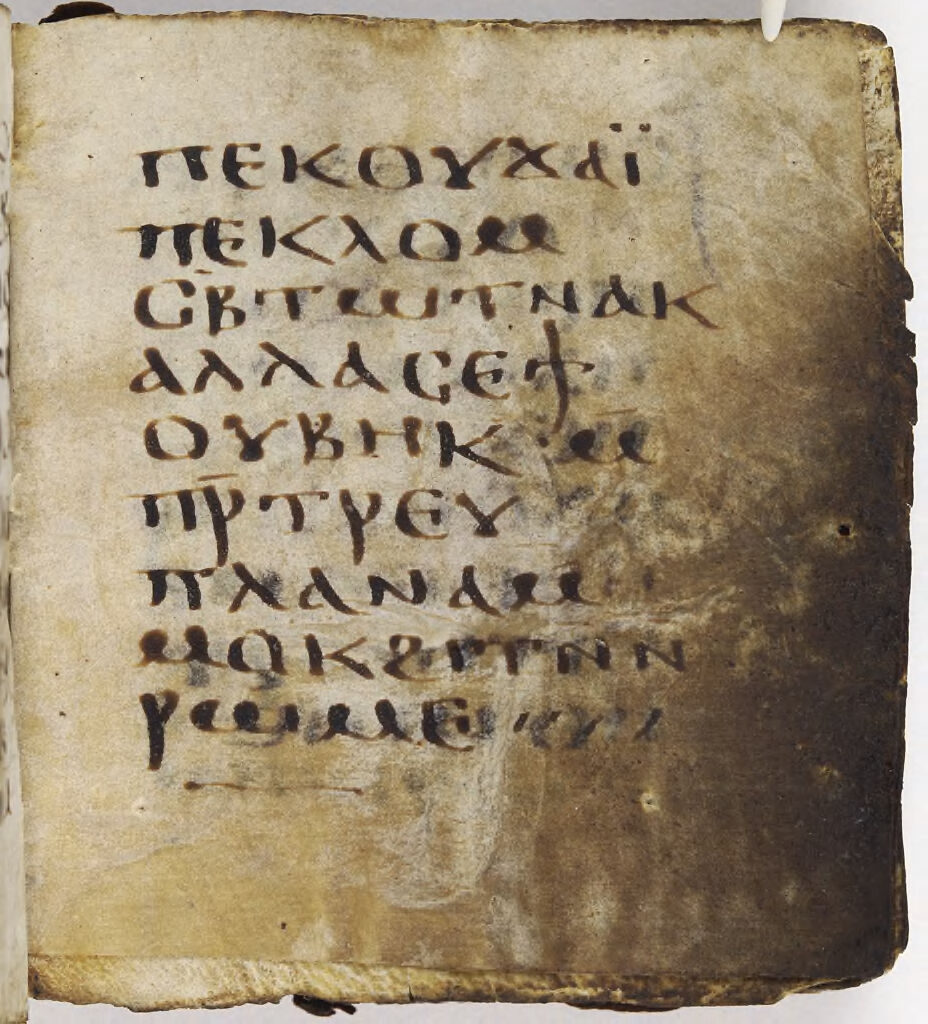 ⲡⲉⲕⲟⲩϫⲁⲓ̈
ⲡⲉⲕⲗⲟⲙ
ⲥⲃ̄ⲧⲱⲧⲛⲁⲕ
ⲁⲗⲗⲁⲥⲉϯ
ⲟⲩⲃⲏⲕ ⲙ̄
ⲡⲣ̄ⲧⲣⲉⲩ
ⲡⲗⲁⲛⲁⲙ
ⲙⲟⲕϩⲓⲧⲛⲛ
ⲣⲱⲙⲉ